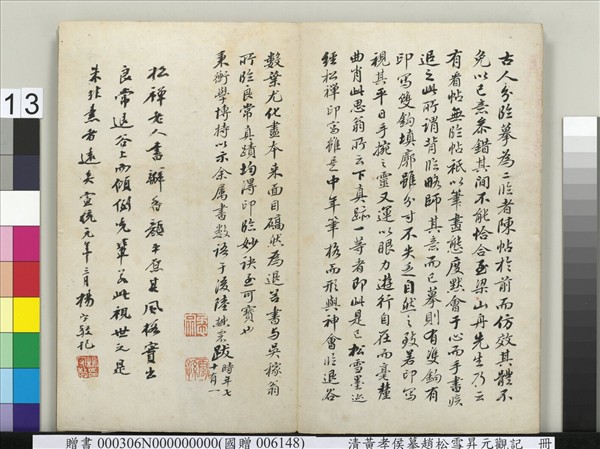 古人分臨摹為二臨者陳帖於前而仿效其體不
免以己意參錯其間不能恰合至梁山舟先生乃云
有看帖無臨帖祇以筆畫態度默會于心而手書以
追之此所謂背臨略師其意而已摹則有雙鉤有
印寫雙鉤填廓雖分寸不失乏自然之致若印寫
視其平日手腕之靈又運以眼力遊行自在而毫釐
曲肖此思翁所云下真跡一等者即此是已松雪墨迹
經松禪印寫雖是中年筆格而形與神會臨退谷
數葉尤化盡本來面目礄然為退谷書與吳稼翁
所臨良常真蹟均得印臨妙訣至可寶也
秉衡學博持以示余属書數語于後陸跋時年七
十有一
松禪老人書瓣香顏平原其風格實出
良常退谷上而傾倒先輩若此視世之是
朱非素者遠矣宣統元年三月楊守敬記
13
贈書 000306N000000000(國贈 006148)
清黃孝侯摹趙松雪昇元觀記 冊